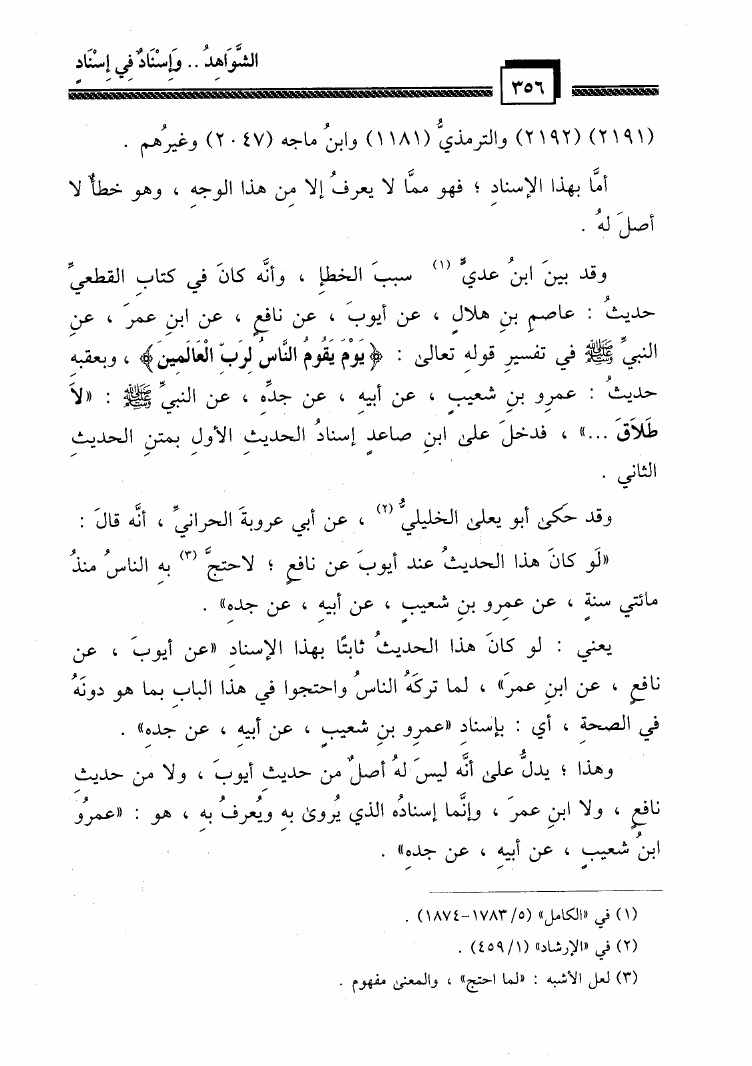 الشَّوَاهِدُ .. وَإِسْنَادٌ فِي إِسْنَادٍ
٣٥٦
(٢١٩١) (٢١٩٢) والترمذيُّ (١١٨١) وابنُ ماجه (٢٠٤٧) وغيرُهم .
أمَّا بهذا الإسنادِ ؛ فهو ممَّا لا يعرفُ إلا مِن هذا الوجهِ ، وهو خطأٌ لا
أصلَ لهُ .
وقد بينَ ابنُ عديٍّ (١) سببَ الخطإِ ، وأنَّه كانَ في كتابِ القطعيِّ
حديثُ : عاصمِ بنِ هلالٍ ، عن أيوبَ ، عن نافعٍ ، عن ابنِ عمرَ ، عنِ
النبيِّ ﷺ في تفسيرِ قولهِ تعالىٰ : ﴿يَوْمَ يَقُومُ النَّاسُ لِرَبِّ الْعَالَمِينَ﴾ ، وبعقبهِ
حديثُ : عمرِو بنِ شعيبٍ ، عن أبيهِ ، عن جدِّه ، عن النبيِّ ﷺ : «لاَ
طَلاَقَ ...» ، فدخلَ علىٰ ابنِ صاعدٍ إسنادُ الحديثِ الأولِ بمتنِ الحديثِ
الثاني .
وقد حَكىٰ أبو يعلىٰ الخليليُّ (٢) ، عن أبي عروبةَ الحرانيِّ ، أنَّه قالَ :
«لَو كانَ هذا الحديثُ عند أيوبَ عن نافعٍ ؛ لاحتجَّ (٣) بهِ الناسُ منذُ
مائتي سنةٍ ، عن عمرِو بنِ شعيبٍ ، عن أبيهِ ، عن جدهِ» .
يعني : لو كانَ هذا الحديثُ ثابتًا بهذا الإسنادِ «عن أيوبَ ، عن
نافعٍ ، عن ابنِ عمرَ» ، لما تركَهُ الناسُ واحتجوا في هذا البابِ بما هو دونَهُ
في الصحةِ ، أي : بإسنادِ «عمرِو بنِ شعيبٍ ، عن أبيهِ ، عن جدهِ» .
وهذا ؛ يدلُّ علىٰ أنَّه ليسَ لهُ أصلٌ من حديثِ أيوبَ ، ولا من حديثِ
نافعٍ ، ولا ابنِ عمرَ ، وإنَّما إسنادُه الذي يُروىٰ بهِ ويُعرفُ بهِ ، هو : «عمرُو
ابنُ شعيبٍ ، عن أبيهِ ، عن جدهِ» .
(١) في «الكامل» (٥/١٧٨٣-١٨٧٤) .
(٢) في «الإرشاد» (١/٤٥٩) .
(٣) لعل الأشبه : «لما احتج» ، والمعنىٰ مفهوم .